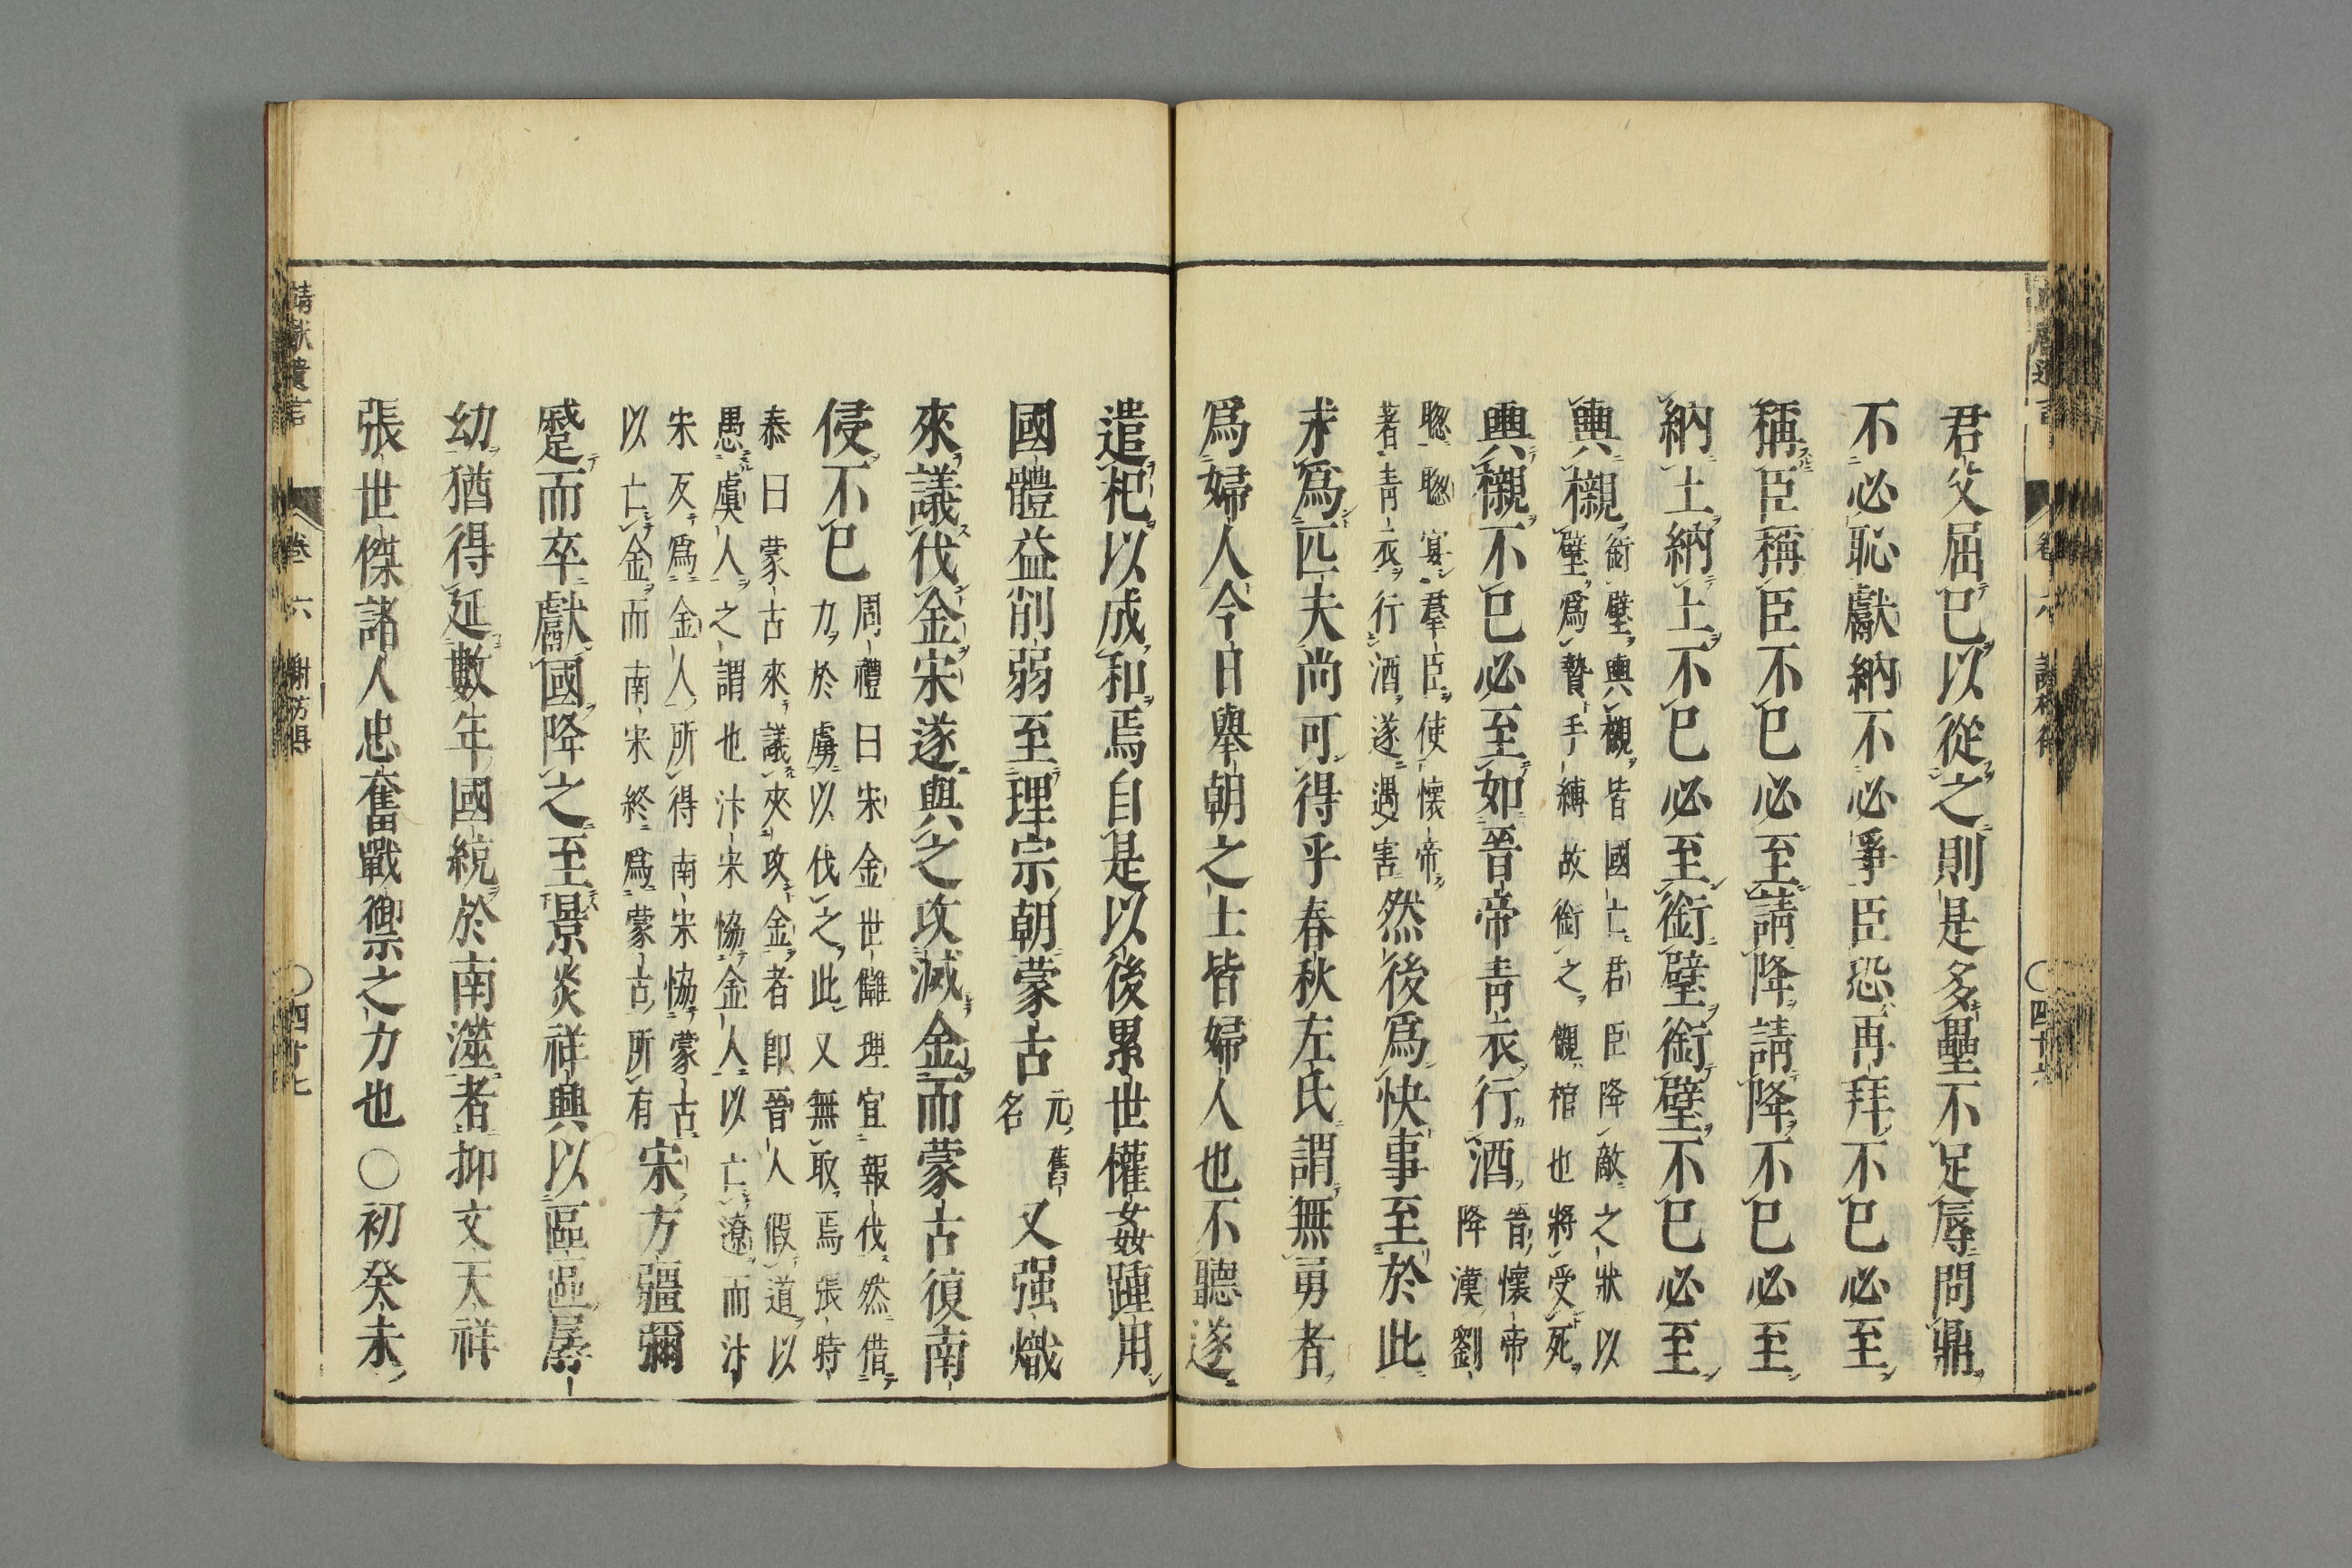 君父屈已以從之則是多壘不足辱問鼎
不必恥獻納不必爭臣恐再拜不已必至
稱臣稱臣不已必至請降請降不已必至
納土納土不已必至銜璧銜璧不已必至
輿櫬
銜璧輿櫬皆國亡君臣降敵之狀以
璧爲贄手縛故銜之櫬棺也將受死
輿櫬不已必至如晉帝青衣行酒
晉懷帝
降漢劉
聰聰宴羣臣使懷帝
著青衣行酒遂遇害
然後爲快事至於此
求爲匹夫尚可得乎春秋左氏謂無勇者
爲婦人今日舉朝之士皆婦人也不聽遂
遣杞以成和焉自是以後累世權姦踵用
國體益削弱至理宗朝蒙古
元舊
名
又强熾
來議伐金宋遂與之攻滅金而蒙古復南
侵不已
周禮曰宋金世讎理宜報伐然借
力於虜以伐之此又無取焉張時
泰曰蒙古來議夾攻金者卽晉人假道以
愚虞人之謂也汴宋恊金人以亡遼而汴
宋反爲金人所得南宋恊蒙古
以亡金而南宋終爲蒙古所有
宋方疆彌
蹙而卒獻國降之至景炎祥興以區區孱
幼猶得延數年國統於南澨者抑文天祥
張世傑諸人忠奮戰禦之力也○初癸未
靖獻遺言 卷六 謝枋得 ○四十七